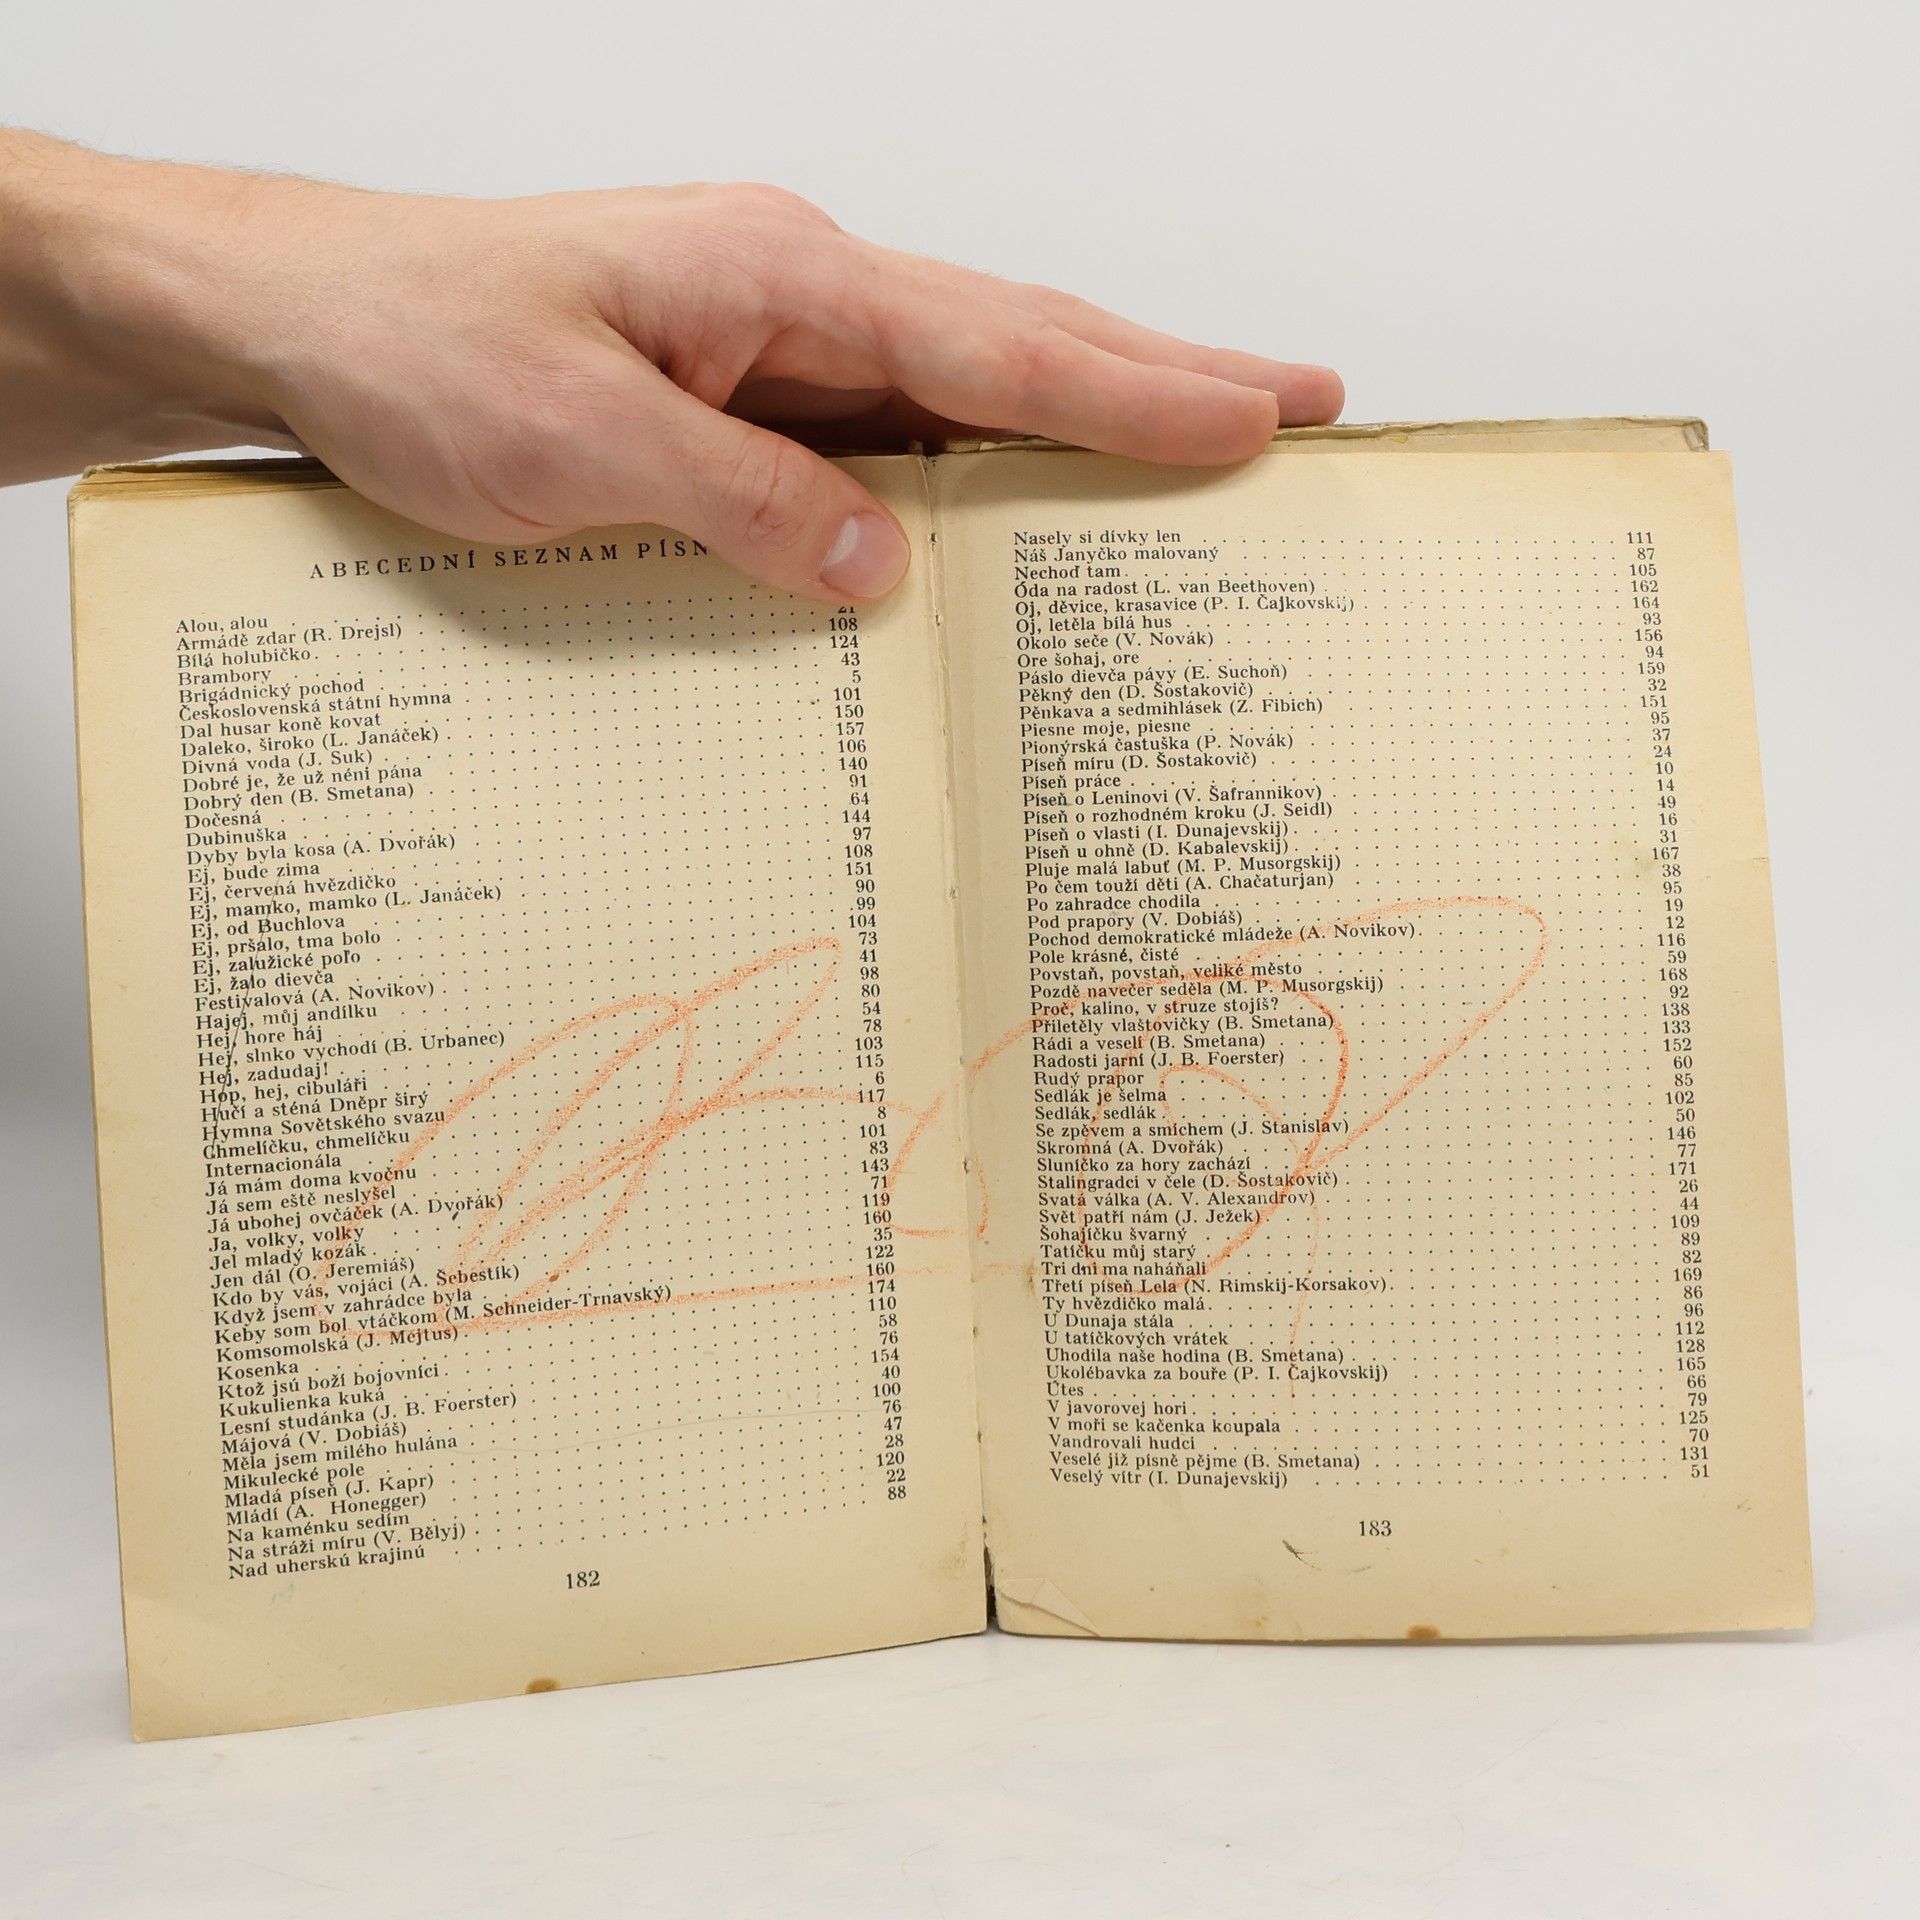 ABECEDNÍ SEZNAM
Alou, alou
Armádě zdar (R. Drejsl) . . . 21
Bílá holubičko . . . 108
Brambory . . . 124
Brigádnický pochod . . . 43
Československá státní hymna . . . 5
Dal husar koně kovat . . . 101
Daleko, široko (L. Janáček) . . . 150
Divná voda (J. Suk) . . . 157
Dobré je, že už néni pána . . . 106
Dobrý den (B. Smetana) . . . 140
Dočesná . . . 91
Dubinuška . . . 64
Dyby byla kosa (A. Dvořák) . . . 144
Ej, bude zima . . . 97
Ej, červená hvězdičko . . . 108
Ej, mamko, mamko (L. Janáček) . . . 151
Ej, od Buchlova . . . 90
Ej, pršalo, tma bolo . . . 99
Ej, zalužické poľo . . . 104
Ej, žalo dievča . . . 73
Festivalová (A. Novikov) . . . 41
Hajej, můj andílku . . . 98
Hej, hore háj . . . 80
Hej, slnko vychodí (B. Urbanec) . . . 54
Hej, zadudaj! . . . 78
Hop, hej, cibuláři . . . 103
Hučí a sténá Dněpr širý . . . 115
Hymna Sovětského svazu . . . 6
Chmelíčku, chmelíčku . . . 117
Internacionála . . . 8
Já mám doma kvočnu . . . 101
Já sem eště neslyšel . . . 83
Já ubohej ovčáček (A. Dvořák) . . . 143
Ja, volky, volky . . . 71
Jel mladý kozák . . . 119
Jen dál (O. Jeremiáš) . . . 160
Kdo by vás, vojáci (A. Šebestík) . . . 35
Když jsem v zahrádce byla . . . 122
Keby som bol vtáčkom (M. Schneider-Trnavský) . . . 160
Komsomolská (J. Mejtus) . . . 174
Kosenka . . . 110
Ktož jsú boží bojovníci . . . 58
Kukulienka kuká . . . 76
Lesní studánka (J. B. Foerster) . . . 154
Májová (V. Dobiáš) . . . 40
Měla jsem milého hulána . . . 100
Mikulecké pole . . . 76
Mladá píseň (J. Kapr) . . . 47
Mládí (A. Honegger) . . . 28
Na kaménku sedím . . . 120
Na stráži míru (V. Bělyj) . . . 22
Nad uherskú krajinú . . . 88
182
Nasely si dívky len . . . 111
Náš Janyčko malovaný . . . 87
Nechoď tam . . . 105
Óda na radost (L. van Beethoven) . . . 162
Oj, děvice, krasavice (P. I. Čajkovskij) . . . 164
Oj, letěla bílá hus . . . 93
Okolo seče (V. Novák) . . . 156
Ore šohaj, ore . . . 94
Páslo dievča pávy (E. Suchoň) . . . 159
Pěkný den (D. Šostakovič) . . . 32
Pěnkava a sedmihlásek (Z. Fibich) . . . 151
Piesne moje, piesne . . . 95
Pionýrská častuška (P. Novák) . . . 37
Píseň míru (D. Šostakovič) . . . 24
Píseň práce . . . 10
Píseň o Leninovi (V. Šafrannikov) . . . 14
Píseň o rozhodném kroku (J. Seidl) . . . 49
Píseň o vlasti (I. Dunajevskij) . . . 16
Píseň u ohně (D. Kabalevskij) . . . 31
Pluje malá labuť (M. P. Musorgskij) . . . 167
Po čem touží děti (A. Chačaturjan) . . . 38
Po zahradce chodila . . . 95
Pod prapory (V. Dobiáš) . . . 19
Pochod demokratické mládeže (A. Novikov) . . . 12
Pole krásné, čisté . . . 116
Povstaň, povstaň, veliké město . . . 59
Pozdě navečer seděla (M. P. Musorgskij) . . . 168
Proč, kalino, v struze stojíš? . . . 92
Přiletěly vlaštovičky (B. Smetana) . . . 138
Rádi a veselí (B. Smetana) . . . 133
Radosti jarní (J. B. Foerster) . . . 152
Rudý prapor . . . 60
Sedlák je šelma . . . 85
Sedlák, sedlák . . . 102
Se zpěvem a smíchem (J. Stanislav) . . . 50
Skromná (A. Dvořák) . . . 146
Sluníčko za hory zachází . . . 77
Stalingradci v čele (D. Šostakovič) . . . 171
Svatá válka (A. V. Alexandrov) . . . 26
Svět patří nám (J. Ježek) . . . 44
Šohajíčku švarný . . . 109
Tatíčku můj starý . . . 89
Tri dni ma naháňali . . . 82
Třetí píseň Lela (N. Rimskij-Korsakov) . . . 169
Ty hvězdičko malá . . . 86
U Dunaja stála . . . 96
U tatíčkových vrátek . . . 112
Uhodila naše hodina (B. Smetana) . . . 128
Ukolébavka za bouře (P. I. Čajkovskij) . . . 165
Útes . . . 66
V javorovej hori . . . 79
V moři se kačenka koupala . . . 125
Vandrovali hudci . . . 70
Veselé již písně pějme (B. Smetana) . . . 131
Veselý vítr (I. Dunajevskij) . . . 51
183